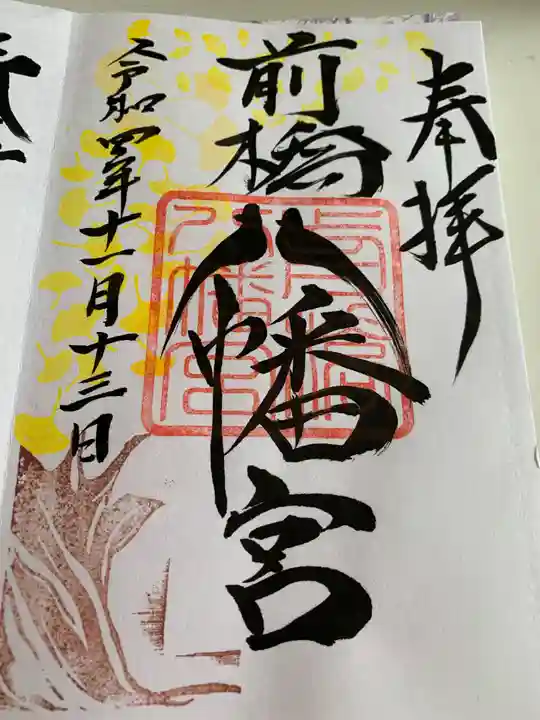 奉拝
前橋八幡宮
令和四年十一月十三日